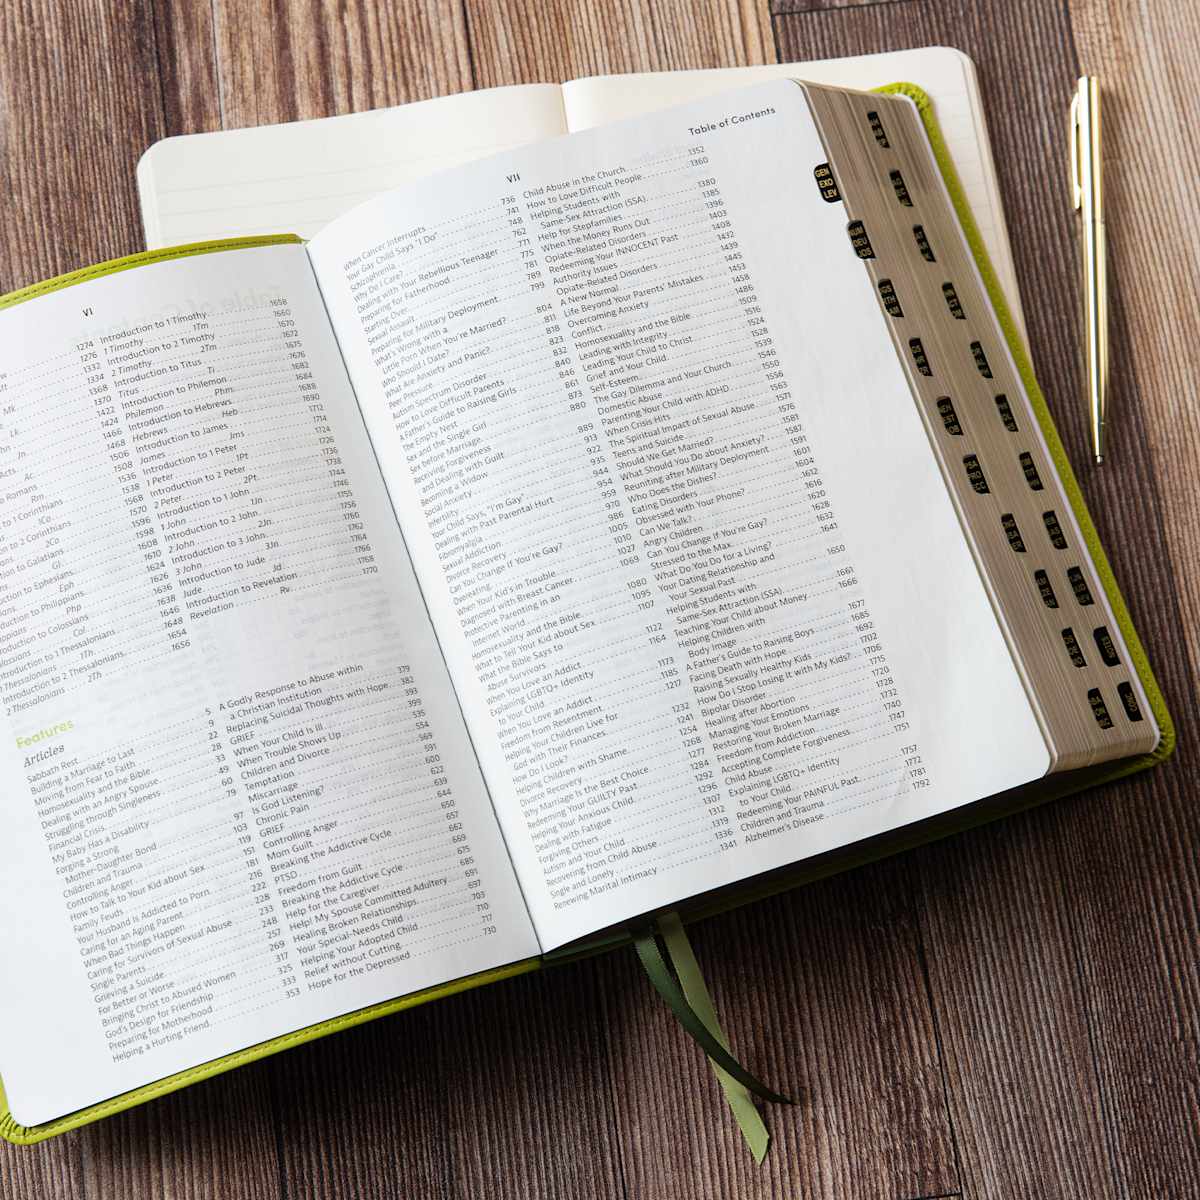 VI
1274
1276
1332
1334
1368
1370
1422
1424
1466
1468
1506
1508
1538
1568
1570
1596
1598
1608
1610
1624
1626
1636
1638
1646
1648
1654
1656
Mk
Lk
Jn
Ac
Rm
to 1 Corinthians
1Co
on to 2 Corinthians
2Co
Gl
Eph
Php
Col
1Th
1 Thessalonians
2 Thessalonians
2Th
Introduction to 1 Timothy 1658
1 Timothy 1Tm 1660
Introduction to 2 Timothy 1670
2 Timothy 2Tm 1672
Introduction to Titus 1675
Titus Ti 1676
Introduction to Philemon 1682
Philemon Phm 1684
Introduction to Hebrews 1688
Hebrews Heb 1690
Introduction to James 1712
James Jms 1714
Introduction to 1 Peter 1724
1 Peter 1Pt 1726
Introduction to 2 Peter 1736
2 Peter 2Pt 1738
Introduction to 1 John 1744
1 John 1Jn 1746
Introduction to 2 John 1755
2 John 2Jn 1756
Introduction to 3 John 1760
3 John 3Jn 1762
Introduction to Jude 1764
Jude Jd 1766
Introduction to Revelation 1768
Revelation Rv 1770
Features
Articles
Sabbath Rest 5
Building a Marriage to Last 9
Moving from Fear to Faith 22
Homosexuality and the Bible 28
Dealing with an Angry Spouse 33
Struggling through Singleness 49
Financial Crisis 60
My Baby Has a Disability 79
Forging a Strong
Mother-Daughter Bond 97
Children and Trauma 103
Controlling Anger 119
How to Talk to Your Kid about Sex 151
Family Feuds 181
Your Husband Is Addicted to Porn 216
Caring for an Aging Parent 222
When Bad Things Happen 228
Caring for Survivors of Sexual Abuse 233
Single Parents 248
Grieving a Suicide 257
For Better or Worse 269
Bringing Christ to Abused Women 317
God's Design for Friendship 325
Preparing for Motherhood 333
Helping a Hurting Friend 353
A Godly Response to Abuse within
a Christian Institution 379
Replacing Suicidal Thoughts with Hope 382
GRIEF 393
When Your Child Is Ill 399
When Trouble Shows Up 535
Children and Divorce 554
Temptation 569
Miscarriage 591
Is God Listening? 600
Chronic Pain 622
GRIEF 639
Controlling Anger 644
Mom Guilt 650
Breaking the Addictive Cycle 657
PTSD 662
Freedom from Guilt 669
Breaking the Addictive Cycle 675
Help for the Caregiver 685
Help! My Spouse Committed Adultery 691
Healing Broken Relationships 697
Your Special-Needs Child 703
Helping Your Adopted Child 710
Relief without Cutting 717
Hope for the Depressed 730
VII
Table of Contents
When Cancer Interrupts 736
Your Gay Child Says "I Do" 741
Schizophrenia 748
Why Do I Care? 762
Dealing with Your Rebellious Teenager 771
Preparing for Fatherhood 775
Starting Over 781
Sexual Assault 789
Preparing for Military Deployment 799
What's Wrong with a
Little Porn When You're Married? 804
Who Should I Date? 811
What Are Anxiety and Panic? 818
Peer Pressure 823
Autism Spectrum Disorder 832
How to Love Difficult Parents 840
A Father's Guide to Raising Girls 846
The Empty Nest 861
Sex and the Single Girl 873
Sex before Marriage 880
Receiving Forgiveness
and Dealing with Guilt 889
Becoming a Widow 913
Social Anxiety 922
Infertility 935
Your Child Says, "I'm Gay" 944
Dealing with Past Parental Hurt 954
Fibromyalgia 959
Sexual Addiction 970
Divorce Recovery 986
Can You Change If You're Gay? 1005
Overeating 1010
When Your Kid's in Trouble 1027
Diagnosed with Breast Cancer 1069
Protective Parenting in an
Internet World 1080
Homosexuality and the Bible 1095
What to Tell Your Kid about Sex 1107
What the Bible Says to
Abuse Survivors 1122
When You Love an Addict 1164
Explaining LGBTQ+ Identity
to Your Child 1173
When You Love an Addict 1185
Freedom from Resentment 1217
Helping Your Children Live for
God with Their Finances 1232
How Do I Look? 1241
Helping Children with Shame 1254
Divorce Recovery 1268
Why Marriage Is the Best Choice 1277
Redeeming Your GUILTY Past 1284
Helping Your Anxious Child 1292
Dealing with Fatigue 1296
Forgiving Others 1307
Autism and Your Child 1312
Recovering from Child Abuse 1319
Single and Lonely 1336
Renewing Marital Intimacy 1341
Child Abuse in the Church 1352
How to Love Difficult People 1360
Helping Students with
Same-Sex Attraction (SSA) 1380
Help for Stepfamilies 1385
When the Money Runs Out 1396
Opiate-Related Disorders 1403
Redeeming Your INNOCENT Past 1408
Authority Issues 1432
Opiate-Related Disorders 1439
A New Normal 1445
Life Beyond Your Parents' Mistakes 1453
Overcoming Anxiety 1458
Conflict 1486
Homosexuality and the Bible 1509
Leading with Integrity 1516
Leading Your Child to Christ 1524
Grief and Your Child 1528
Self-Esteem 1539
The Gay Dilemma and Your Church 1546
Domestic Abuse 1550
Parenting Your Child with ADHD 1556
When Crisis Hits 1563
The Spiritual Impact of Sexual Abuse 1571
Teens and Suicide 1576
Should We Get Married? 1581
What Should You Do about Anxiety? 1587
Reuniting after Military Deployment 1591
Who Does the Dishes? 1601
Eating Disorders 1604
Obsessed with Your Phone? 1612
Can We Talk? 1616
Angry Children 1620
Can You Change If You're Gay? 1628
Stressed to the Max 1632
What Do You Do for a Living? 1641
Your Dating Relationship and
Your Sexual Past 1650
Helping Students with
Same-Sex Attraction (SSA) 1661
Teaching Your Child about Money 1666
Helping Children with
Body Image 1677
A Father's Guide to Raising Boys 1685
Facing Death with Hope 1692
Raising Sexually Healthy Kids 1702
How Do I Stop Losing It with My Kids? 1706
Bipolar Disorder 1715
Healing after Abortion 1720
Managing Your Emotions 1728
Restoring Your Broken Marriage 1732
Freedom from Addiction 1740
Accepting Complete Forgiveness 1747
Child Abuse 1751
Explaining LGBTQ+ Identity
to Your Child 1757
Redeeming Your PAINFUL Past 1772
Children and Trauma 1781
Alzheimer's Disease 1792
GEN
EXO
LEV
NUM
DEU
JOS